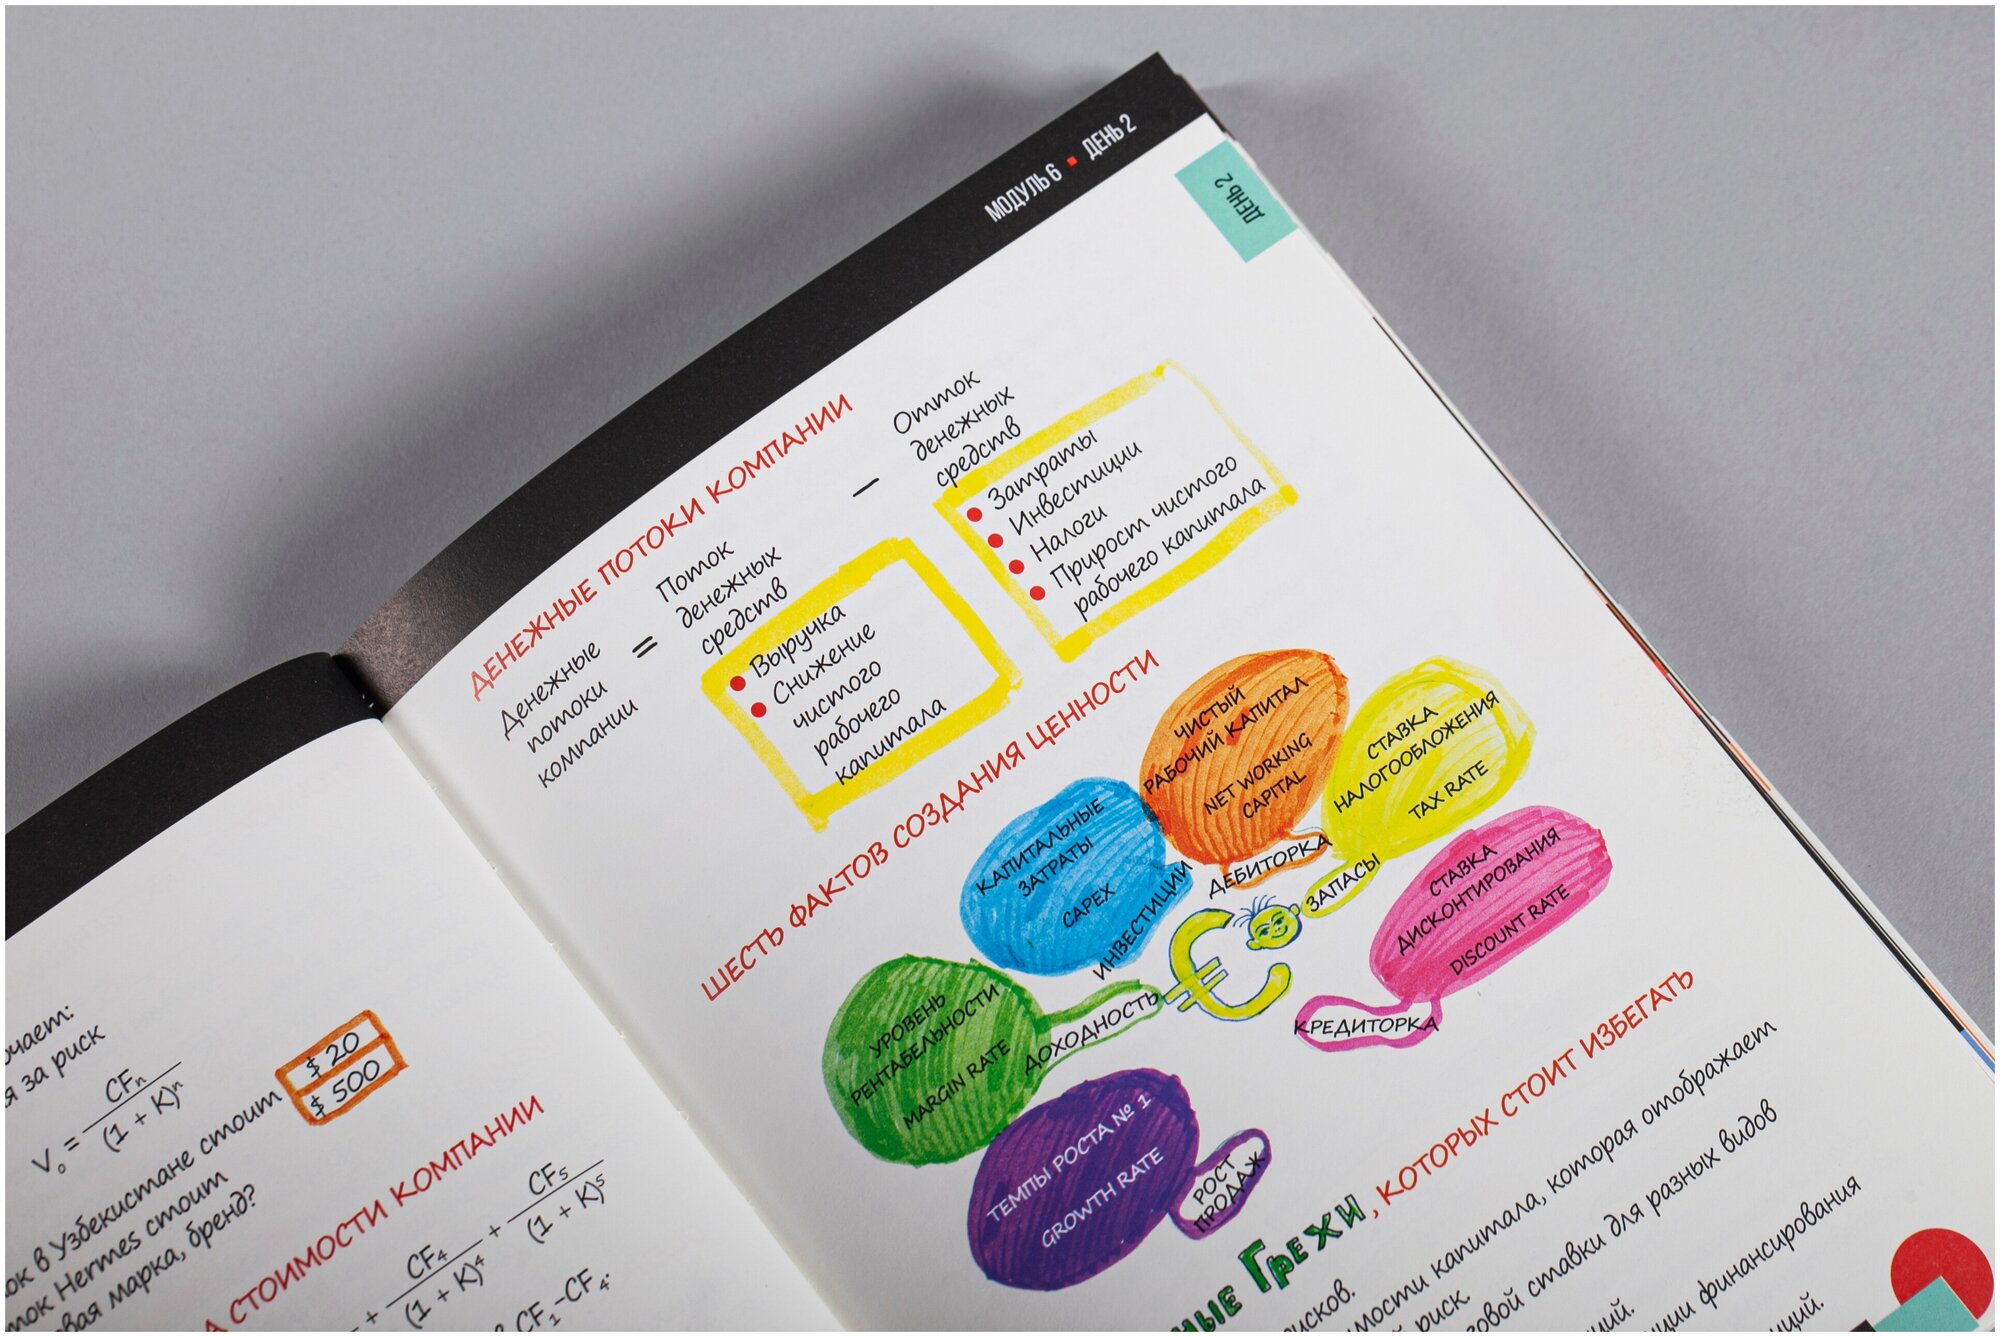 чает:
я за риск
V₀ = CFₙ / (1 + K)ⁿ
ок в Узбекистане стоит $ 20
ток Hermes стоит $ 500
вая марка, бренд?
СТОИМОСТИ КОМПАНИИ
+ CF₄ / (1 + K)⁴ + CF₅ / (1 + K)⁵
CF₁-CF₄.
МОДУЛЬ 6 ▪ ДЕНЬ 2
ДЕНЬ 2
ДЕНЕЖНЫЕ ПОТОКИ КОМПАНИИ
Денежные
потоки
компании
=
Поток
денежных
средств
● Выручка
● Снижение
чистого
рабочего
капитала
–
Отток
денежных
средств
● Затраты
● Инвестиции
● Налоги
● Прирост чистого
рабочего капитала
ШЕСТЬ ФАКТОВ СОЗДАНИЯ ЦЕННОСТИ
ТЕМПЫ РОСТА № 1
GROWTH RATE
РОСТ
ПРОДАЖ
УРОВЕНЬ
РЕНТАБЕЛЬНОСТИ
MARGIN RATE
ДОХОДНОСТЬ
КАПИТАЛЬНЫЕ
ЗАТРАТЫ
CAPEX
ИНВЕСТИЦИИ
ЧИСТЫЙ
РАБОЧИЙ КАПИТАЛ
NET WORKING
CAPITAL
ДЕБИТОРКА
СТАВКА
НАЛОГООБЛОЖЕНИЯ
TAX RATE
ЗАПАСЫ
СТАВКА
ДИСКОНТИРОВАНИЯ
DISCOUNT RATE
КРЕДИТОРКА
€
НЫЕ ГРЕХИ, КОТОРЫХ СТОИТ ИЗБЕГАТЬ
мости капитала, которая отображает
исков.
говой ставки для разных видов
риск.
ции финансирования
ий.
ций.